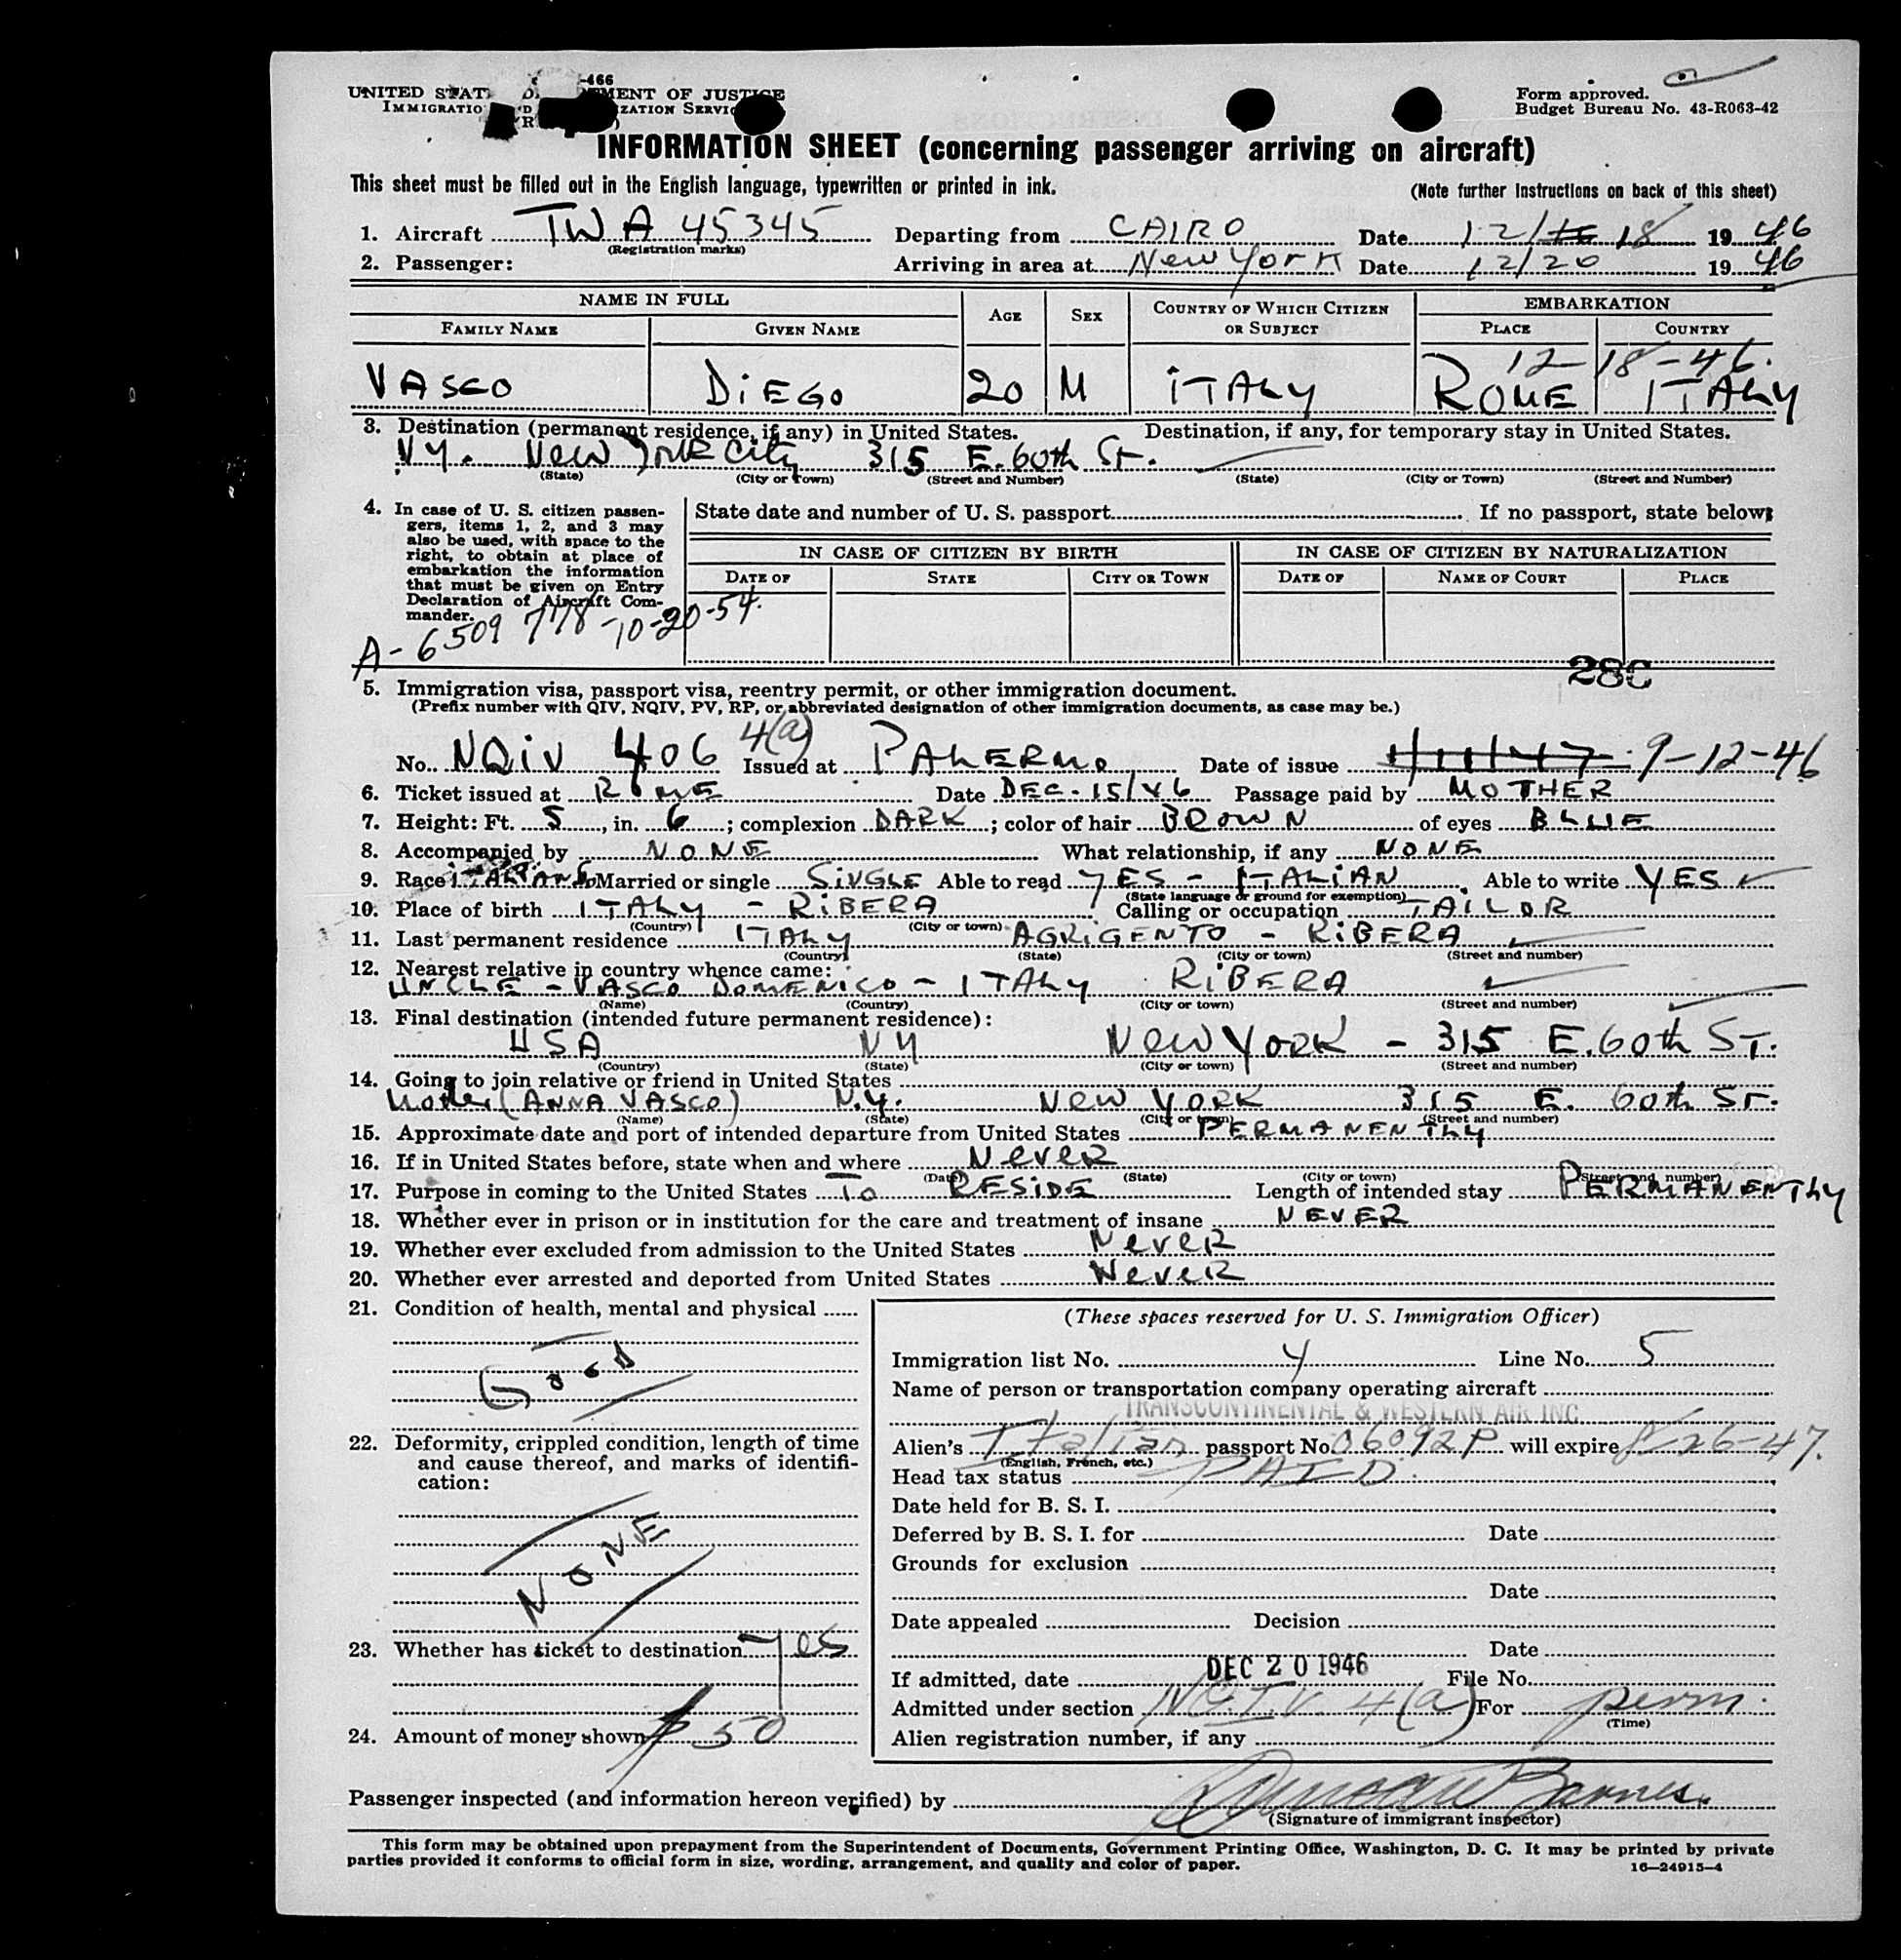 -466
UNITED STAT MENT OF JUSTICE
IMMIGRATIO ZATION SERVIC
Form approved.
Budget Bureau No. 43-R063-42
INFORMATION SHEET (concerning passenger arriving on aircraft)
This sheet must be filled out in the English language, typewritten or printed in ink. (Note further instructions on back of this sheet)
1. Aircraft TWA 45345 Departing from CAIRO Date 12/18 1946
(Registration marks)
2. Passenger: Arriving in area at New York Date 12/20 1946
NAME IN FULL AGE SEX COUNTRY OF WHICH CITIZEN OR SUBJECT EMBARKATION
FAMILY NAME GIVEN NAME PLACE COUNTRY
12-18-46.
VASCO DiEGO 20 M iTALY ROME ITALY
3. Destination (permanent residence, if any) in United States. Destination, if any, for temporary stay in United States.
NY. New York City 315 E. 60th St.
(State) (City or Town) (Street and Number) (State) (City or Town) (Street and Number)
4. In case of U. S. citizen passengers, items 1, 2, and 3 may also be used, with space to the right, to obtain at place of embarkation the information that must be given on Entry Declaration of Aircraft Commander.
State date and number of U. S. passport If no passport, state below:
IN CASE OF CITIZEN BY BIRTH IN CASE OF CITIZEN BY NATURALIZATION
DATE OF STATE CITY OR TOWN DATE OF NAME OF COURT PLACE
A-6509 778-10-20-54.
28C
5. Immigration visa, passport visa, reentry permit, or other immigration document.
(Prefix number with QIV, NQIV, PV, RP, or abbreviated designation of other immigration documents, as case may be.)
No. NQiV 406 4(a) Issued at PALERMO Date of issue 9-12-46
6. Ticket issued at ROME Date DEC-15/46 Passage paid by MOTHER
7. Height: Ft. 5, in. 6; complexion DARK; color of hair BROWN of eyes BLUE
8. Accompanied by NONE What relationship, if any NONE
9. Race ITALIAN Married or single SiNGLE Able to read YES - ITALiAN Able to write YES
(State language or ground for exemption)
10. Place of birth ITALY - RiBERA Calling or occupation TAILOR
(Country) (City or town)
11. Last permanent residence ITALY AGRiGENTO - RiBERA
(Country) (State) (City or town) (Street and number)
12. Nearest relative in country whence came:
UNCLE - VASCO DOMENICO - ITALY RiBERA
(Name) (Country) (City or town) (Street and number)
13. Final destination (intended future permanent residence):
USA NY New YORK - 315 E. 60th ST.
(Country) (State) (City or town) (Street and number)
14. Going to join relative or friend in United States
Mother (ANNA VASCO) N.Y. New YORK 315 E. 60th ST.
(Name) (State) (City or town) (Street and number)
15. Approximate date and port of intended departure from United States PERMANENTLY
16. If in United States before, state when and where NeveR
(Date) (State) (City or town) (Street and number)
17. Purpose in coming to the United States To RESiDE Length of intended stay PERMANENTLY
18. Whether ever in prison or in institution for the care and treatment of insane NEVER
19. Whether ever excluded from admission to the United States NeveR
20. Whether ever arrested and deported from United States NeveR
21. Condition of health, mental and physical
GooD
22. Deformity, crippled condition, length of time and cause thereof, and marks of identification:
NONE
23. Whether has ticket to destination yes
24. Amount of money shown $ 50
(These spaces reserved for U. S. Immigration Officer)
Immigration list No. 4 Line No. 5
Name of person or transportation company operating aircraft
TRANSCONTINENTAL & WESTERN AIR INC
Alien's Italian passport No. 06092P will expire 8-26-47.
(English, French, etc.)
Head tax status PAID.
Date held for B. S. I.
Deferred by B. S. I. for Date
Grounds for exclusion
Date
Date appealed Decision
Date
If admitted, date DEC 20 1946 File No.
Admitted under section N.Q.I.V. 4(a) For perm.
(Time)
Alien registration number, if any
Passenger inspected (and information hereon verified) by Barnes.
(Signature of immigrant inspector)
This form may be obtained upon prepayment from the Superintendent of Documents, Government Printing Office, Washington, D. C. It may be printed by private
parties provided it conforms to official form in size, wording, arrangement, and quality and color of paper. 16—24915-4